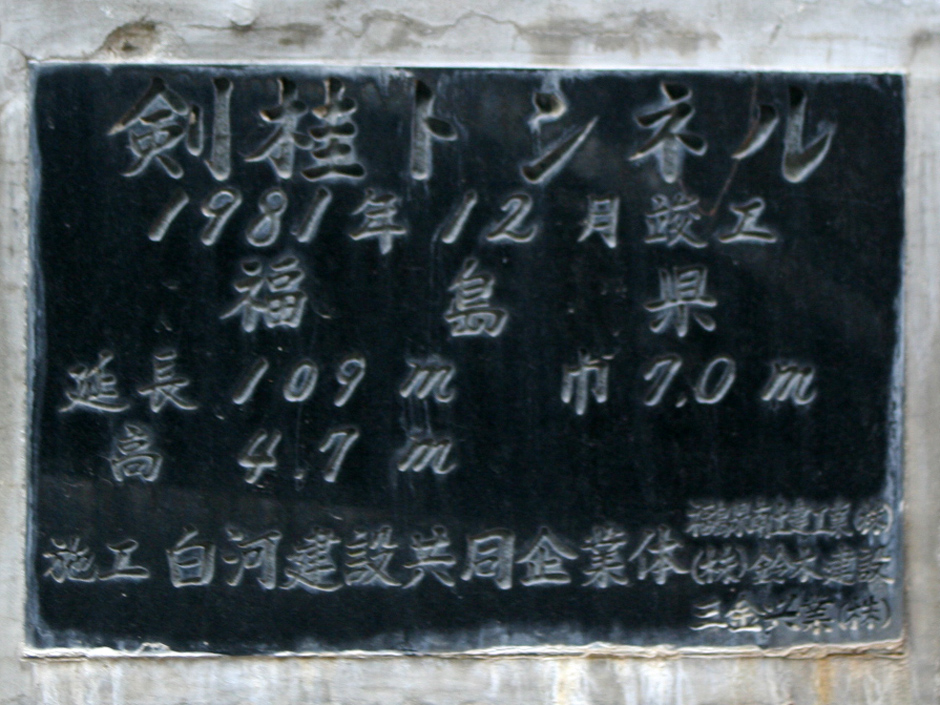 剣桂トンネル
1981年12月竣工
福島県
延長 109m 巾 7.0m
高 4.7m
施工 白河建設共同企業体
(株)鈴木建設
三金興業(株)